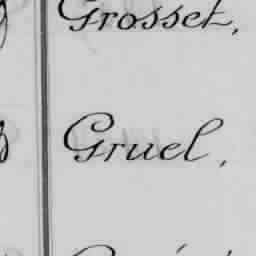 Grosset,
Gruel,